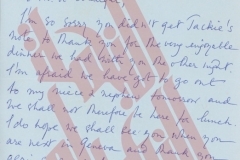 I'm so sorry you didn't get Jackie's
note to thank you for the very enjoyable
dinner we had with you the other night.
I'm afraid we have got to go out
to my niece & nephew tomorrow and
we shall not therefore be here to lunch.
I do hope we shall see you when you
are next in Geneva and thank you
again